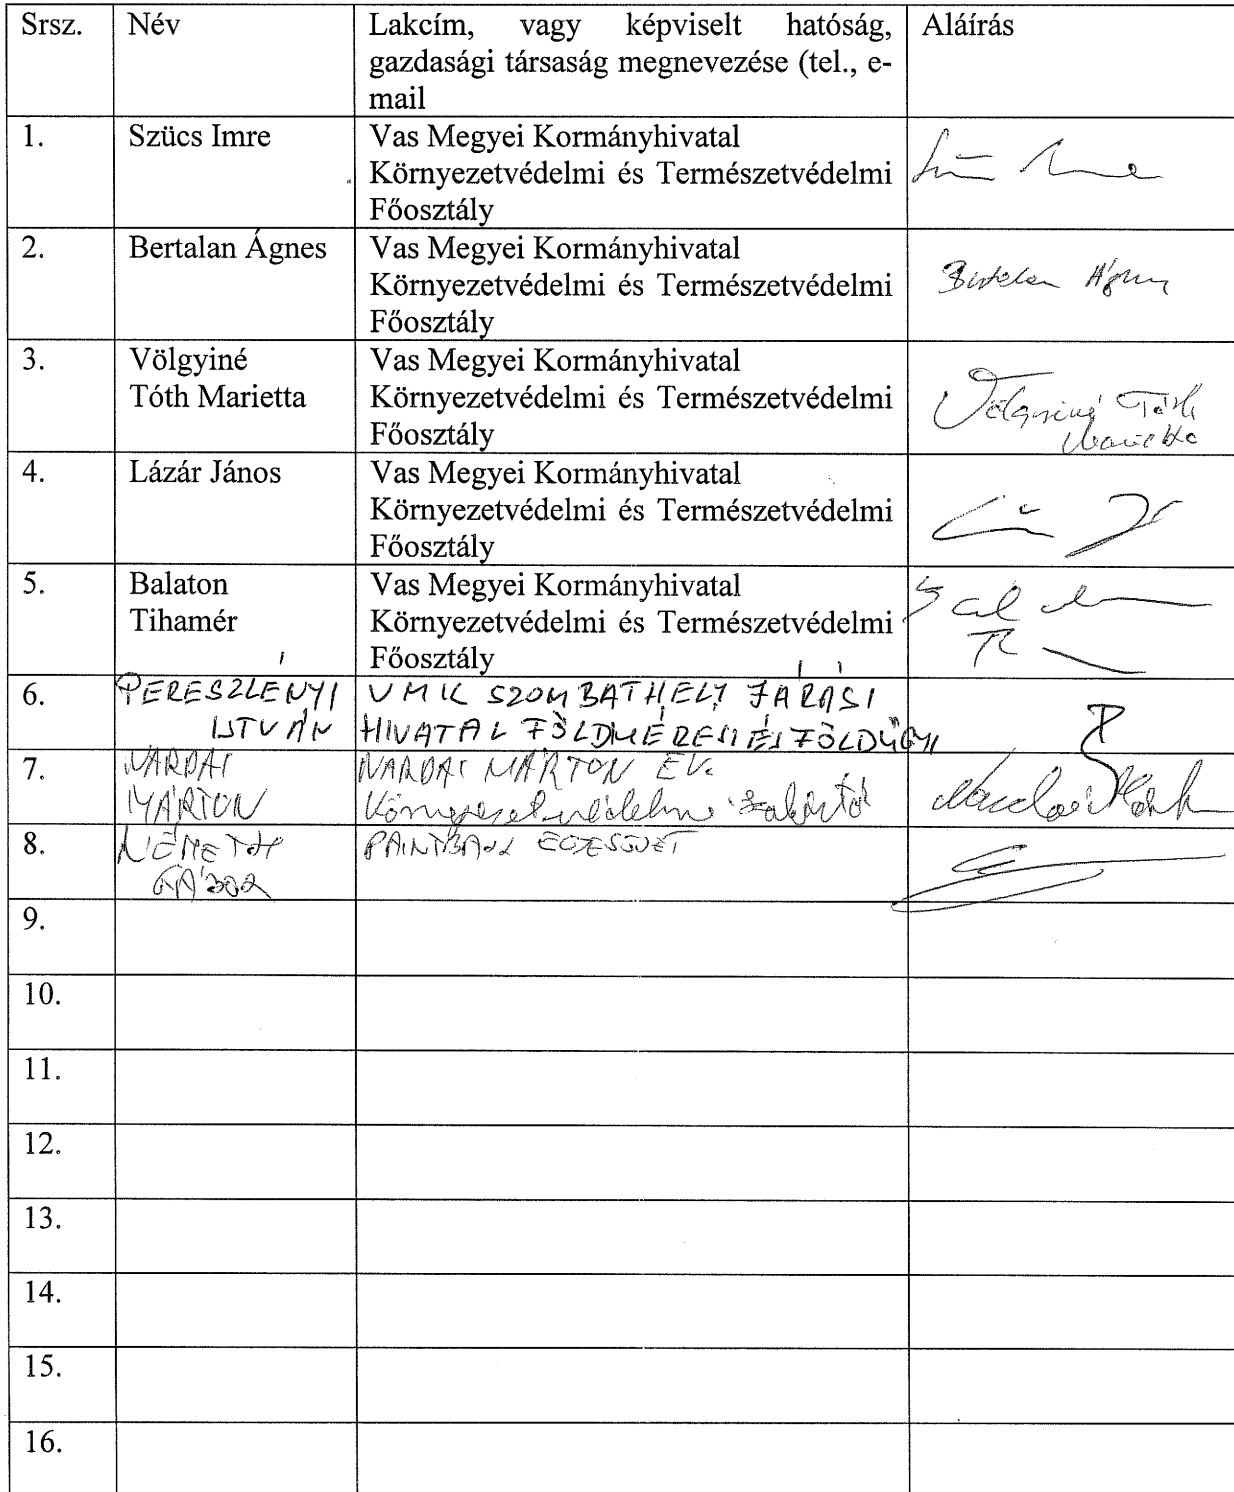 Srsz. Név Lakcím, vagy képviselt hatóság, Aláírás
gazdasági társaság megnevezése (tel., e-
mail
1. Szücs Imre Vas Megyei Kormányhivatal
Környezetvédelmi és Természetvédelmi
Főosztály
2. Bertalan Ágnes Vas Megyei Kormányhivatal
Környezetvédelmi és Természetvédelmi Bertalan Ágnes
Főosztály
3. Völgyiné Vas Megyei Kormányhivatal
Tóth Marietta Környezetvédelmi és Természetvédelmi Völgyiné Tóth
Főosztály Marietta
4. Lázár János Vas Megyei Kormányhivatal
Környezetvédelmi és Természetvédelmi
Főosztály
5. Balaton Vas Megyei Kormányhivatal
Tihamér Környezetvédelmi és Természetvédelmi
Főosztály
6. PERESZLÉNYI VMK SZOMBATHELY JÁRÁSI
ISTVÁN HIVATAL FÖLDMÉRÉSI ÉS FÖLDÜGYI
7. NARDAI NARDAI MÁRTON EV.
MÁRTON Környezetvédelmi
8. NÉMETH PAINTBALL EGYESÜLET
GÁBOR
9.
10.
11.
12.
13.
14.
15.
16.